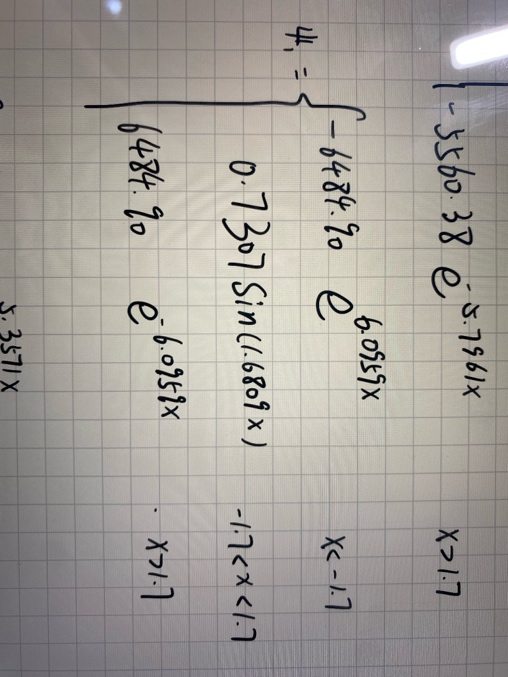 -5560.38 e^-5.7961x x>1.7
-6484.90 e^6.0959x x<-1.7
ψ₁ = { 0.7307 sin(1.6809x) -1.7<x<1.7
6484.90 e^-6.0959x x>1.7
5.3571x